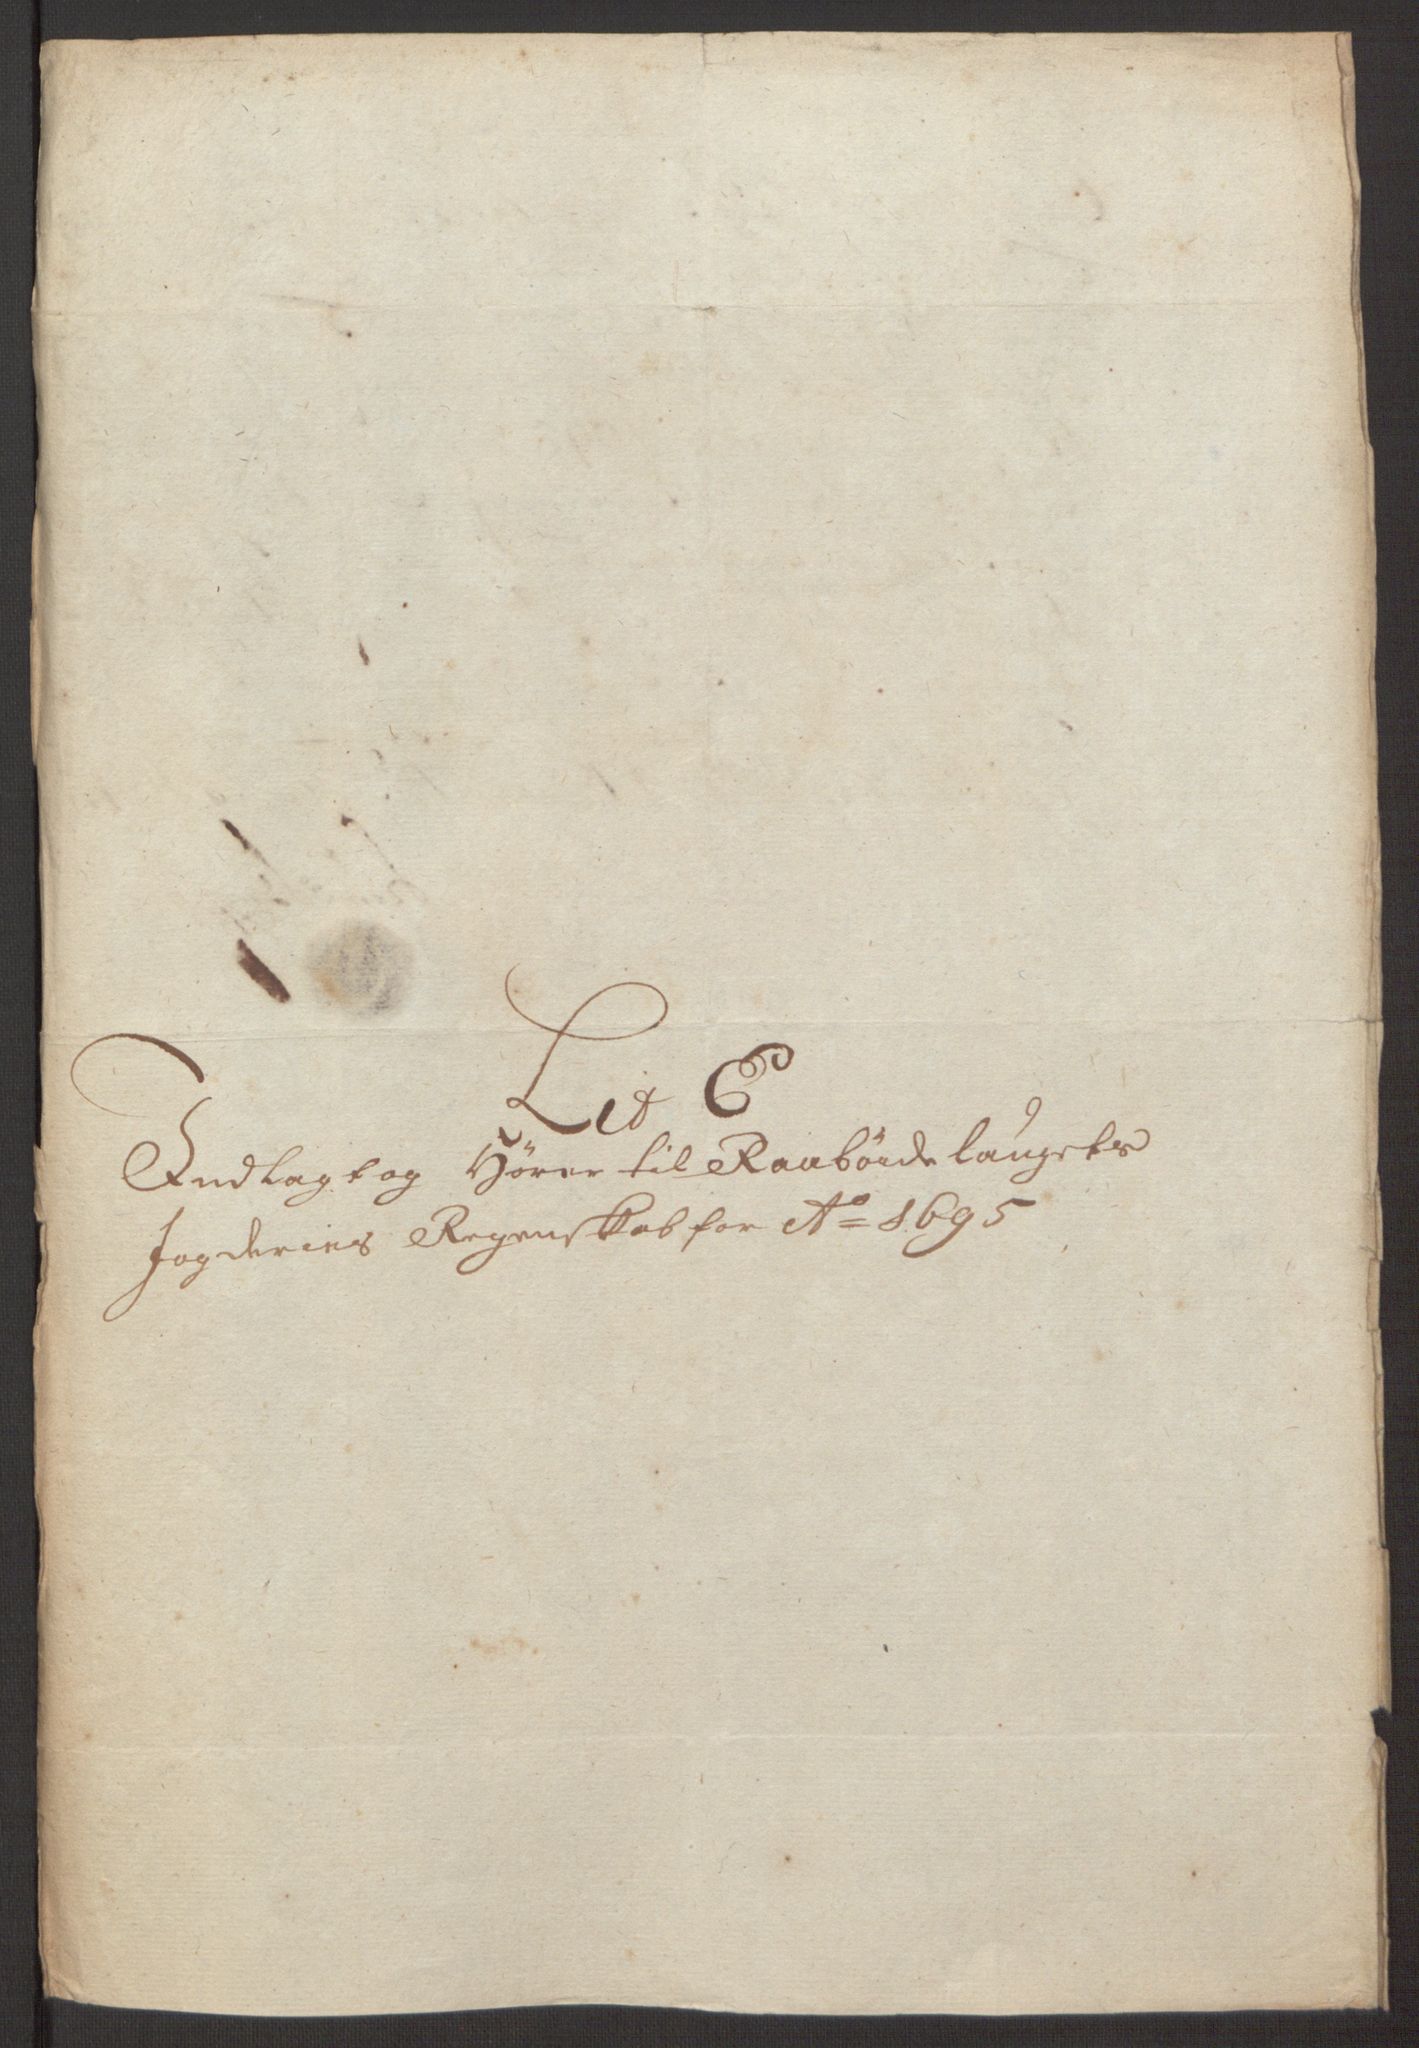 Lit E
Indlagt og Hörer til Raaböidelaugets
fogderies Regenskab for Aº 1695